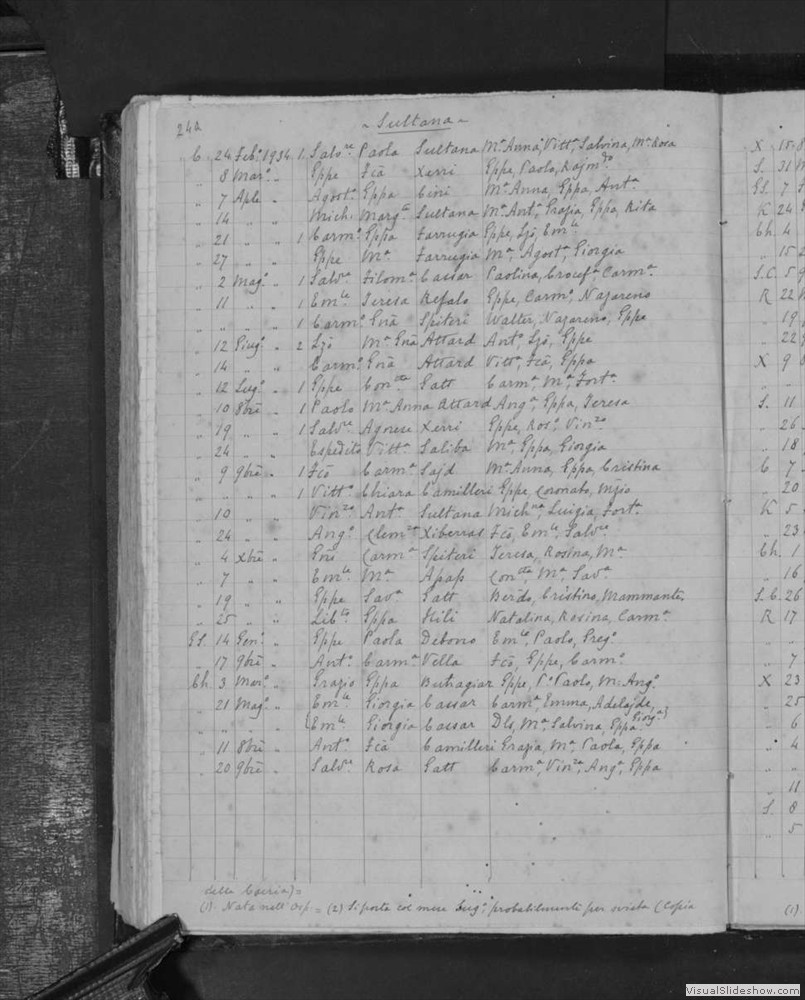 24a
- Sultana -
C 24 Feb.º 1934 1 Salv.re Paola Sultana M.a Anna, Vitt.a Salvina, M.a Rosa
" 8 Mar.º " Eppe Fcã Xerri Eppe, Paolo, Rajm.do
" 7 Aple " Agost.º Eppa Cini M.a Anna, Eppa, Ant.a
" 14 " " Mich. Marg.ta Sultana M.a Ant.a, Grazia, Eppa, Rita
" 21 " " 1 Carm.º Eppa Farrugia Eppe, Ljõ, Em.le
" 27 " " Eppe M.a Farrugia M.a, Agost.a, Giorgia
" 2 Mag.º " 1 Salv.re Filom.a Cassar Paolina, Crocef.a Carm.a
" 11 " " 1 Em.le Teresa Refalo Eppe, Carm.º, Nazareno
" " " " 1 Carm.º Gnã Spiteri Walter, Nazareno, Eppe
" 12 Giug.º " 2 Ljõ M.a Gnã Attard Ant.º Ljõ, Eppe
" 14 " " Carm.º Gnã Attard Vitt.a, Fcã, Eppa
" 12 Lug.º " 1 Eppe Con.tta Gatt Carm.a, M.a, Fort.a
" 10 8bre " 1 Paolo M.a Anna Attard Ang.a, Eppa, Teresa
" 19 " " 1 Salv.re Agnese Xerri Eppe, Ros.º, Vin.zo
" 24 " " Espedito Vitt.a Saliba M.a, Eppa, Giorgia
" 9 9bre " 1 Fcõ Carm.a Sajd M.a Anna, Eppa, Cristina
" " " " 1 Vitt.º Chiara Camilleri Eppe, Coronato,
" 10 " " Vin.zo Ant.a Sultana Mich.na, Luigia, Fort.a
" 24 " " Ang.º Clem.za Xiberras Fcõ, Em.le, Salv.re
" 4 Xbre " Gnõ Carm.a Spiteri Teresa, Rosina, M.a
" 7 " " Em.le M.a Apap Con.tta, M.a, Sav.a
" 19 " " Eppe Sav.a Gatt Berdo, Cristino, Mammante
" 25 " " Lib.to Eppa Hili Natalina, Rosina, Carm.a
GS. 14 Gen.º " Eppe Paola Debono Em.le, Paolo, Greg.º
" 17 9bre " Ant.º Carm.a Vella Fcõ, Eppe, Carm.º
Ch 3 Mar.º " Grazio Eppa Buhagiar Eppe, P.º Paolo, M. Ang.º
" 21 Mag.º " Em.le Giorgia Cassar Carm.a, Emma, Adelajde,
" " " (Em.le Giorgia Cassar Dls, M.a, Salvina, Eppa, Giorg.a)
" 11 8bre " Ant.º Fcã Camilleri Grazia, M.a, Paola, Eppa
" 20 9bre " Salv.re Rosa Gatt Carm.a, Vin.za, Ang.a, Eppa
della Curia) =
(1) Nata nell'Osp. = (2) Si porta col mese Lug.º probabilmenti per svista (Copia
X , 15
S. 31
GS. 7
K 24
Ch. 4
" 15
S.C. 5
R 22
" 19
" 22
X 9
S. 11
" 26
" 18
C 7
" 20
K 5
" 23
Ch. 1
" 16
S.C. 26
R 17
" 7
X 23
" 25
" 6
" 4
" 11
S. 8
" 5
(1).
VisualSlideshow.com